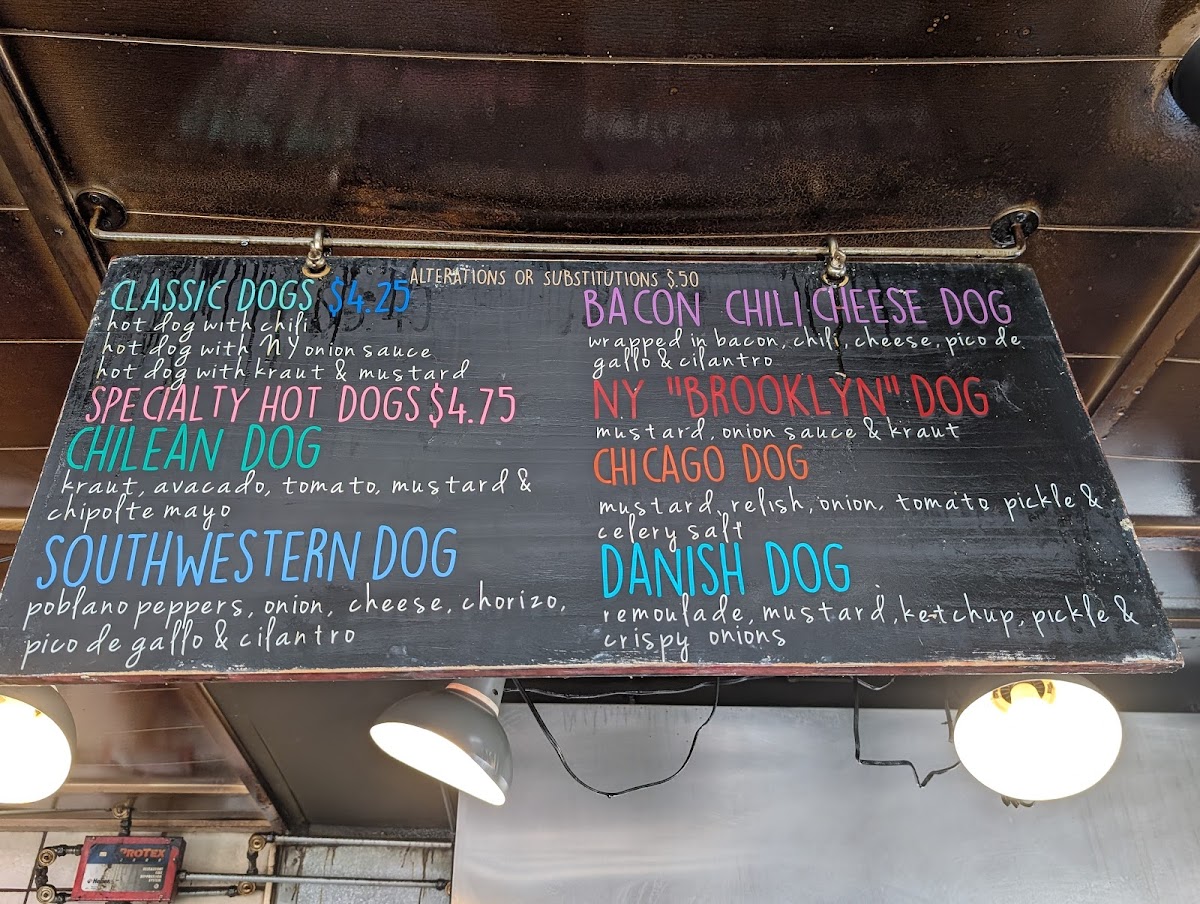 ALTERATIONS OR SUBSTITUTIONS $.50
CLASSIC DOGS $4.25
hot dog with chili
hot dog with NY onion sauce
hot dog with kraut & mustard
SPECIALTY HOT DOGS $4.75
CHILEAN DOG
kraut, avacado, tomato, mustard &
chipolte mayo
SOUTHWESTERN DOG
poblano peppers, onion, cheese, chorizo,
pico de gallo & cilantro
BACON CHILI CHEESE DOG
wrapped in bacon, chili, cheese, pico de
gallo & cilantro
NY "BROOKLYN" DOG
mustard, onion sauce & kraut
CHICAGO DOG
mustard, relish, onion, tomato, pickle &
celery salt
DANISH DOG
remoulade, mustard, ketchup, pickle &
crispy onions
PROTEX